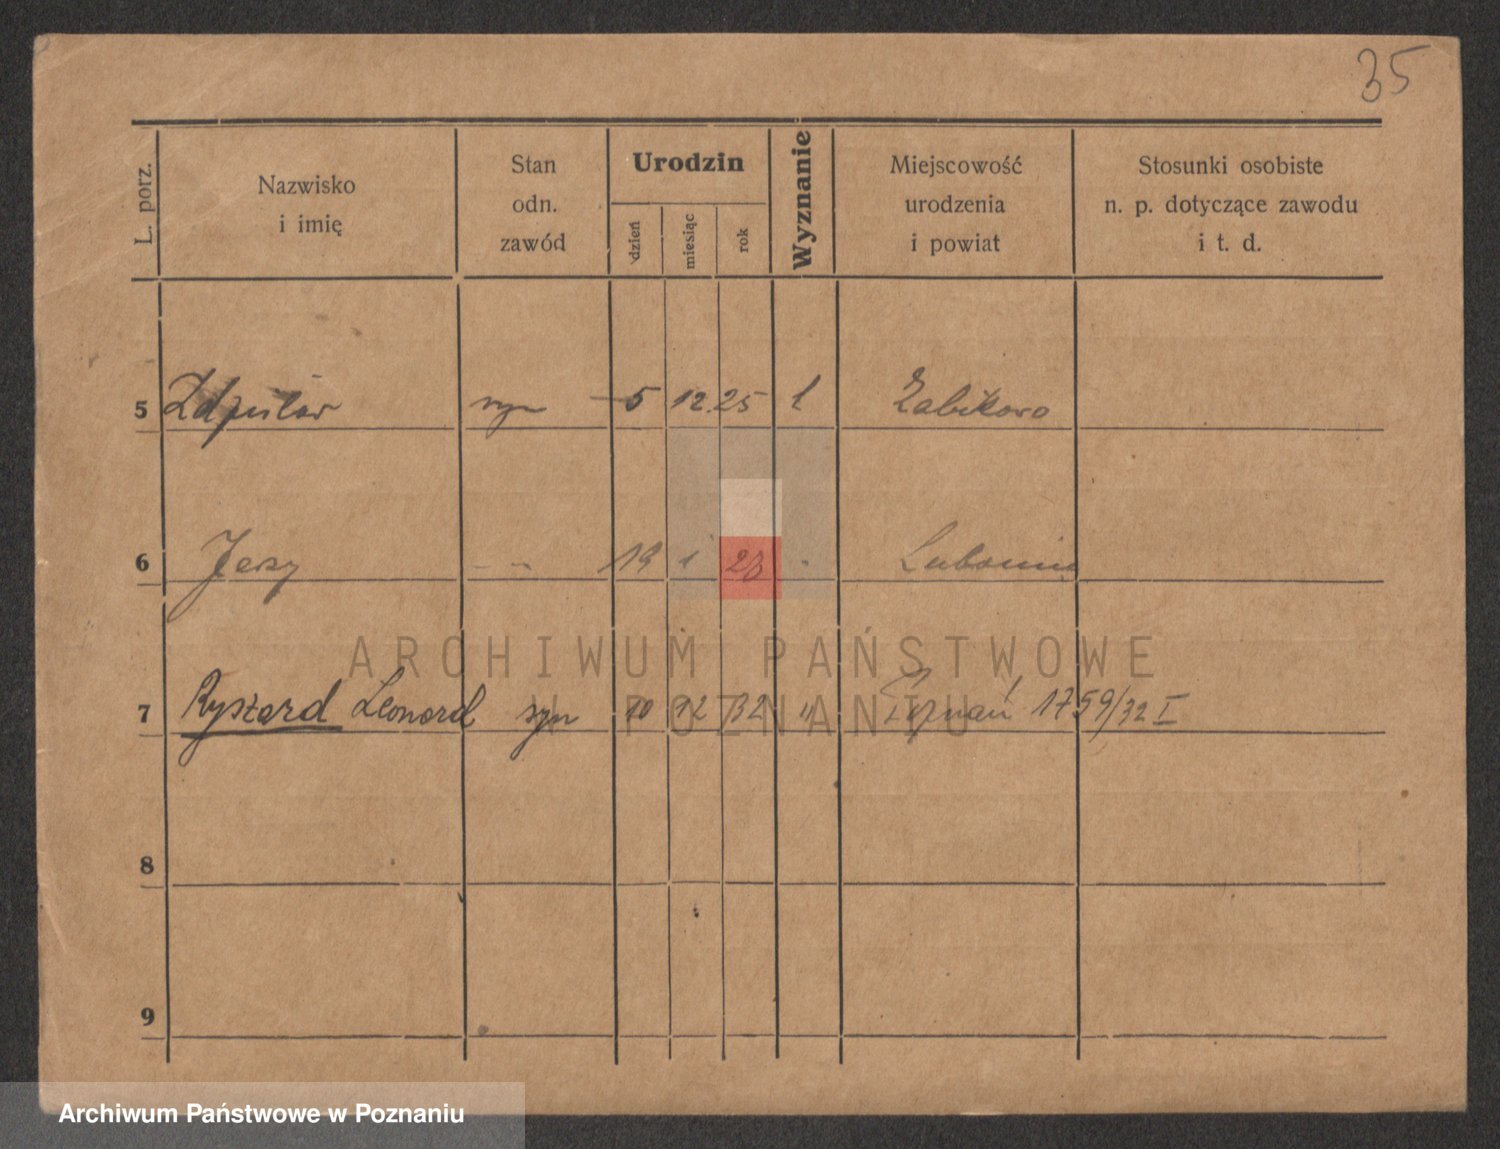 35
L. porz.
Nazwisko
i imię
Stan
odn.
zawód
Urodzin
dzień
miesiąc
rok
Wyznanie
Miejscowość
urodzenia
i powiat
Stosunki osobiste
n. p. dotyczące zawodu
i t. d.
5 syn 5 12 25 Żabikowo
6 Jerzy - - 19 1 28
7 Ryszard Leonard syn 10 12 32 " Poznań 1759/32 I
8
9
ARCHIWUM PAŃSTWOWE
W POZNANIU
Archiwum Państwowe w Poznaniu